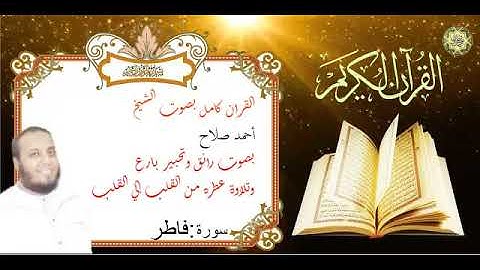 القرآن الكريم
القران كامل بصوت الشيخ
أحمد صلاح
بصوت رائق وتحبير بارع
وتلاوة عطره من القلب الي القلب
سورة :فاطر